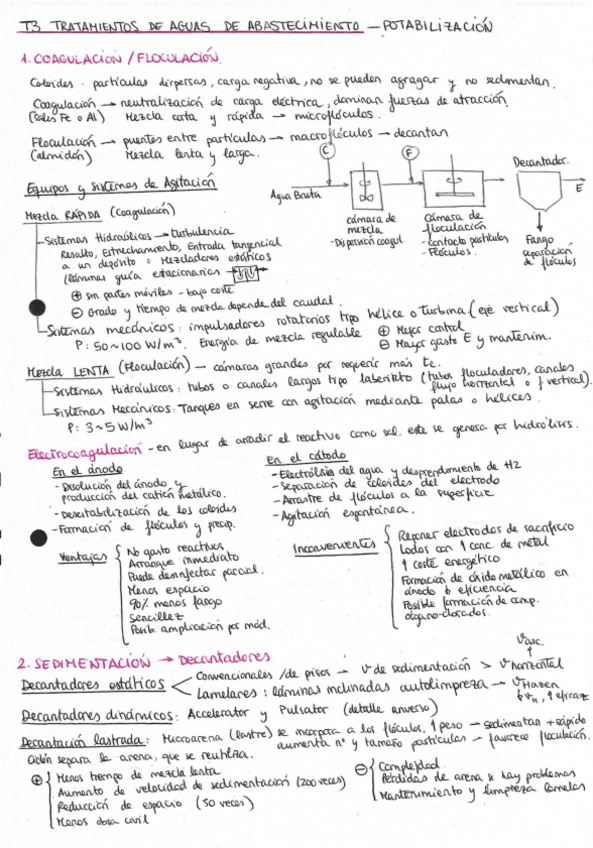 T3. TRATAMIENTOS DE AGUAS DE ABASTECIMIENTO — POTABILIZACIÓN
1. COAGULACIÓN / FLOCULACIÓN.
Coloides: partículas dispersas, carga negativa, no se pueden agragar y no sedimentan.
Coagulación → neutralización de carga eléctrica, dominan fuerzas de atracción.
(Sales Fe o Al) Mezcla corta y rápida → microflóculos.
Floculación → puentes entre partículas → macroflóculos → decantan
(almidón) Mezcla lenta y larga.
C
F
Decantador.
Agua Bruta
E
cámara de mezcla
- Dispersión coagul.
Cámara de floculación
- contacto partículas
- Flóculos.
Fango
separación de flóculos
Equipos y sistemas de Agitación
Mezcla RÁPIDA (Coagulación)
Sistemas Hidraúlicos → turbulencia
Resalto, Estrechamiento, Entrada tangencial
a un depósito o Mezcladores estáticos
(láminas guía estacionarias
⊕ sin partes móviles - bajo coste
⊖ Grado y tiempo de mezcla depende del caudal.
Sistemas mecánicos: impulsadores rotatorios tipo hélice o turbina. (eje vertical)
P: 50~100 W/m³. Energía de mezcla regulable ⊕ Mejor control
⊖ Mayor gasto E y mantenim.
Mezcla LENTA (Floculación) — cámaras grandes por requerir más te.
Sistemas Hidráulicos: tubos o canales largos tipo laberinto (tubos floculadores, canales
flujo horizontal o f vertical).
Sistemas Mecánicos: Tanques en serie con agitación mediante palas o hélices.
P: 3~5 W/m³
Electrocoagulación - en lugar de añadir el reactivo como sal, este se genera por hidrólisis.
En el ánodo
- Disolución del ánodo y
producción del catión metálico.
- Desestabilización de los coloides
- Formación de flóculos y precip.
En el cátodo
- Electrólisis del agua y desprendimiento de H2
- Separación de coloides del electrodo
- Arrastre de flóculos a la superficie
- Agitación espontánea.
Ventajas
No gasto reactivos
Arranque inmediato
Puede desinfectar parcial.
Menos espacio
90% menos fango
Sencillez
Posib. ampliación por mód.
Inconvenientes
Reponer electrodos de sacrificio
Lodos con ↑ conc. de metal
↑ coste energético
Formación de óxido metálico en
ánodo ↓ eficiencia
Posible formación de comp.
organo-clorados.
2. SEDIMENTACIÓN → Decantadores
Decantadores estáticos
Convencionales /de pisos — V de sedimentación > V horizontal
V asc.
Lamelares: láminas inclinadas autolimpieza → V Hazen
↓ V_H, ↑ eficaz
Decantadores dinámicos: Accelerator y Pulsator (detalle anverso)
Decantación lastrada: Microarena (lastre) se incorpora a los flóculos, ↑ peso — sedimentan + rápido
aumenta nº y tamaño partículas — favorece floculación.
Ciclón separa la arena, que se reutiliza.
⊕
Menos tiempo de mezcla lenta
Aumento de velocidad de sedimentación (200 veces)
Reducción de espacio (50 veces)
Menos obra civil
⊖
Complejidad
Pérdidas de arena si hay problemas
Mantenimiento y limpieza lamelas